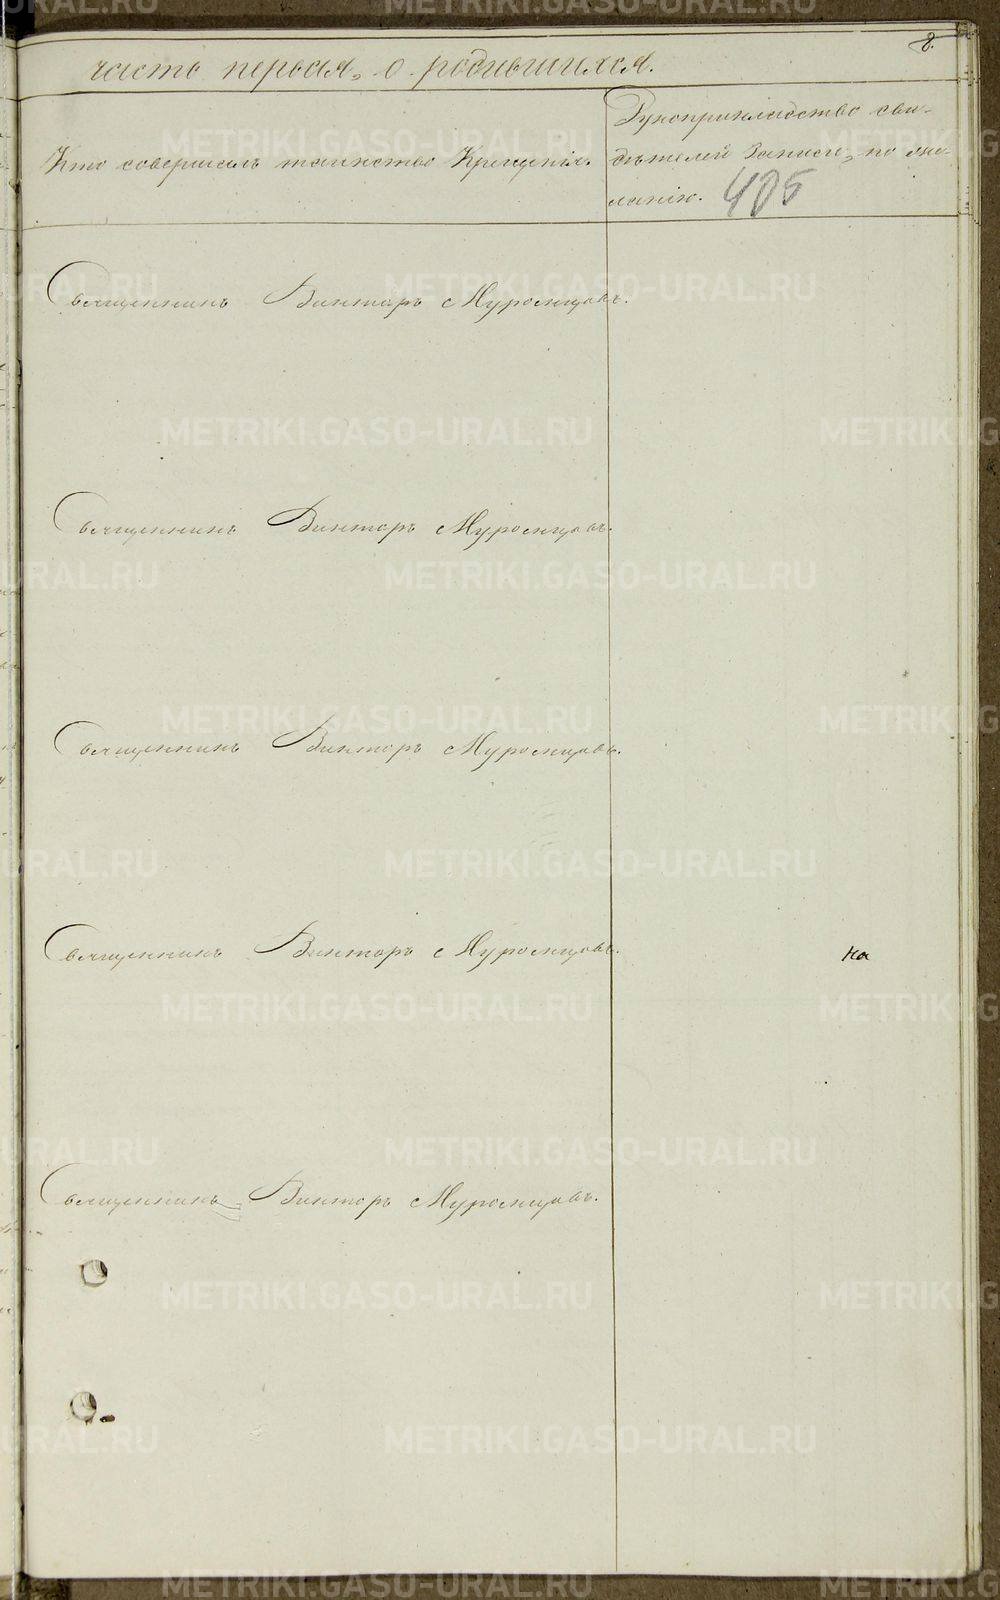 8.
часть первая, о родившихся.
Кто совершалъ таинство Крещенія.
Рукоприкладство сви-
дѣтелей записи, по же-
ланію. 405
Священникъ Викторъ Муромцовъ.
Священникъ Викторъ Муромцовъ.
Священникъ Викторъ Муромцовъ.
Священникъ Викторъ Муромцовъ.
ка
Священникъ Викторъ Муромцовъ.
METRIKI.GASO-URAL.RU